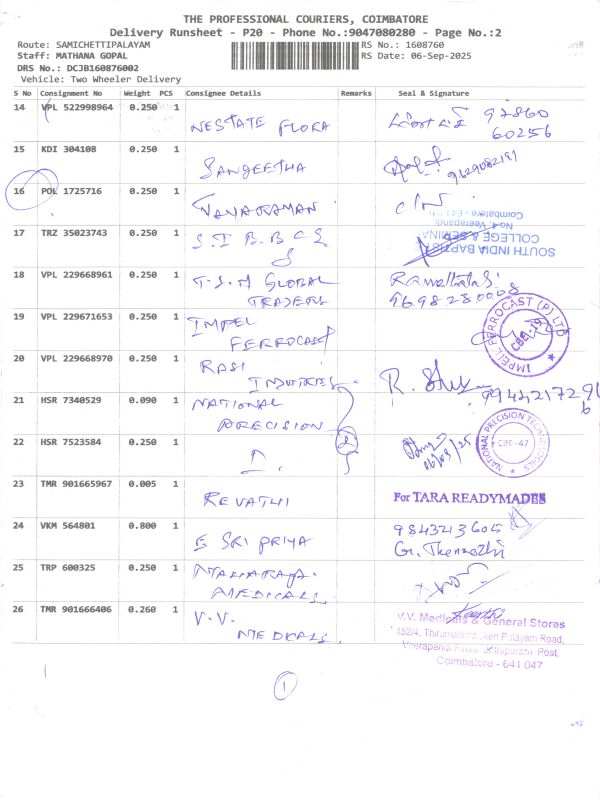 THE PROFESSIONAL COURIERS, COIMBATORE
Delivery Runsheet - P20 - Phone No.:9047080280 - Page No.:2
Route: SAMICHETTIPALAYAM
RS No.: 1608760
Staff: MATHANA GOPAL
RS Date: 06-Sep-2025
DRS No.: DCJB160876002
Vehicle: Two Wheeler Delivery
S No Consignment No Weight PCS Consignee Details Remarks Seal & Signature
14 VPL 522998964 0.250 1
NESTATE FLORA
97860
60256
15 KDI 304108 0.250 1
SANGEETHA
9629082191
16 POL 1725716 0.250 1
C/N
Coimbatore - 641
No.4, Veerapandi
17 TRZ 35023743 0.250 1
S.I B.B C &
COLLEGE & SEMINA
SOUTH INDIA BAPTIST
18 VPL 229668961 0.250 1
T.S.M GLOBAL
TRADERS
9698280008
19 VPL 229671653 0.250 1
IMPEL
FERROCAST
IMPELL FERROCAST (P) LTD
CBE-19
20 VPL 229668970 0.250 1
RASI
INDUTRIES
R.
21 HSR 7340529 0.090 1
NATIONAL
PRECISION
2
NATIONAL PRECISION TECHNOLOGIES
CBE-47
22 HSR 7523584 0.250 1
06/09/25
23 TMR 901665967 0.005 1
REVATHI
For TARA READYMADES
24 VKM 564801 0.800 1
E SRI PRIYA
9843243605
G. Thenmozhi
25 TRP 600325 0.250 1
MAHARAJA
MEDICALS
26 TMR 901666406 0.260 1
V.V.
MEDICALS
Keerthi
V.V. Medicals & General Stores
152/4, Palayam Road,
Veerapandi Post,
Coimbatore - 641 047
1